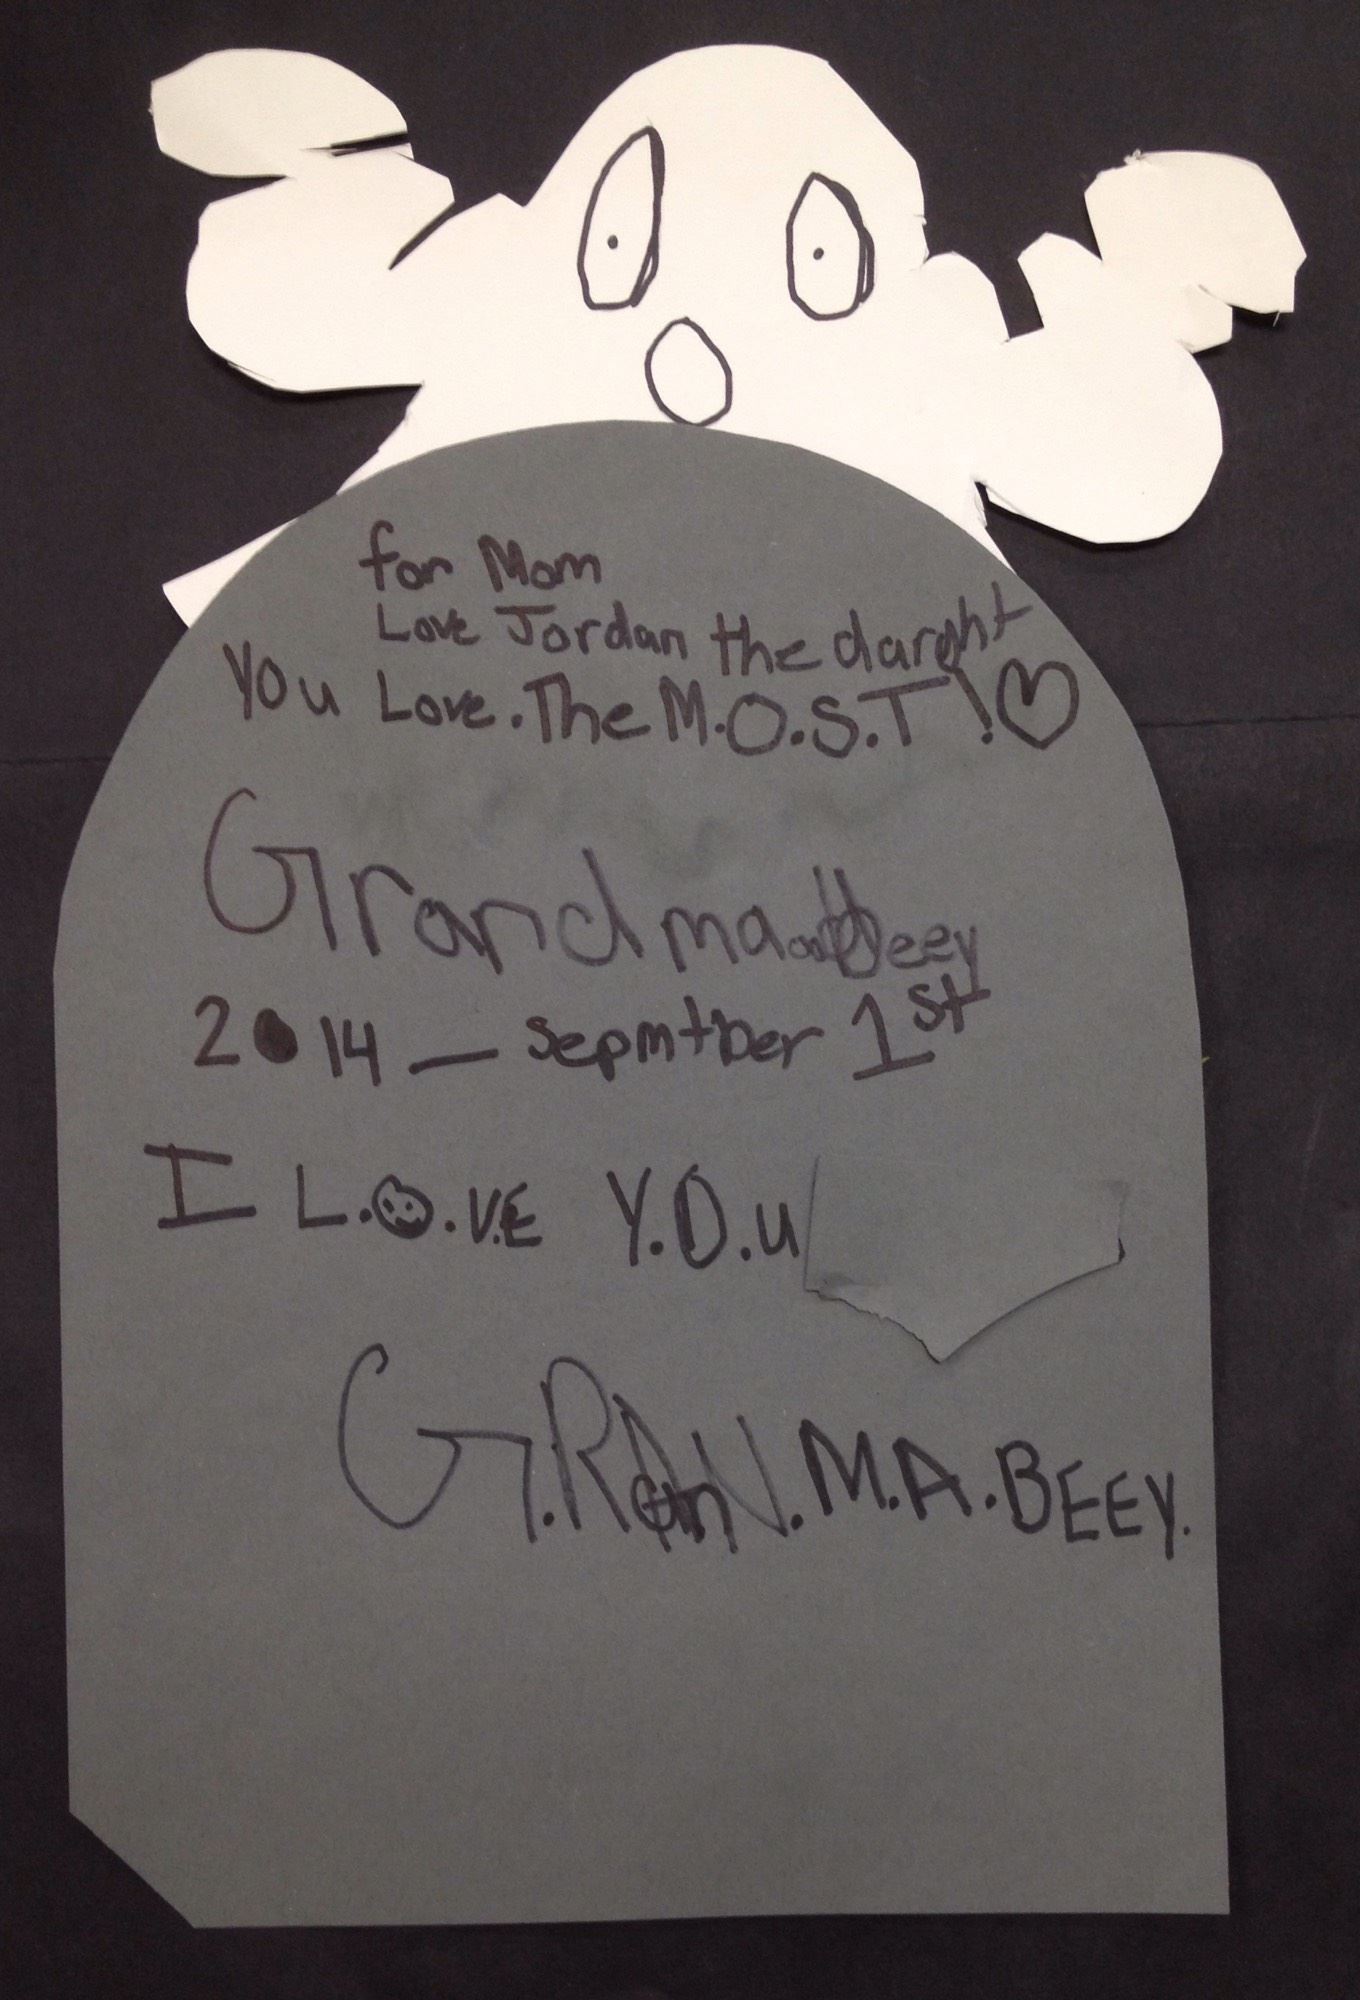 for Mom
Love Jordan the darght
You Love. The M.O.S.T! ♡
Grandma Beey
2014 — sepmtber 1st
I L.O.V.E Y.O.u
G.RAN.M.A.BEEY.